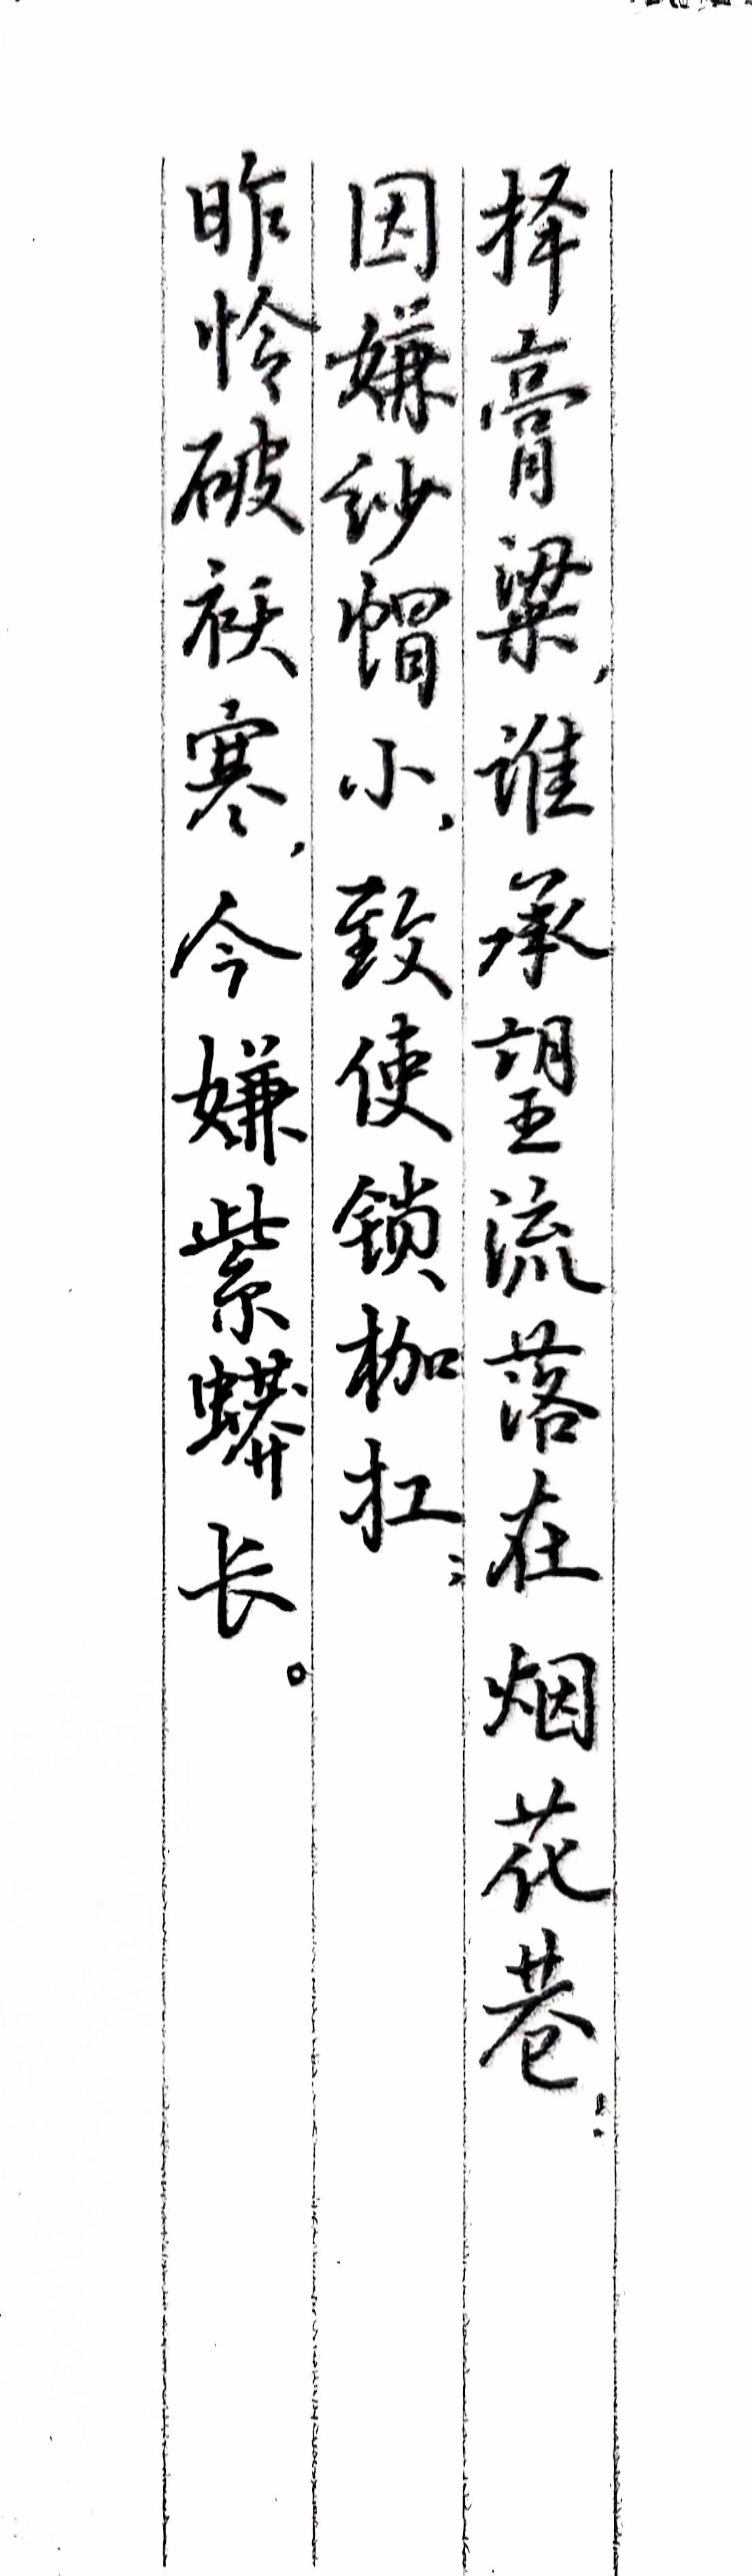 择膏粱,谁承望流落在烟花巷;
因嫌纱帽小,致使锁枷扛;
昨怜破袄寒,今嫌紫蟒长。